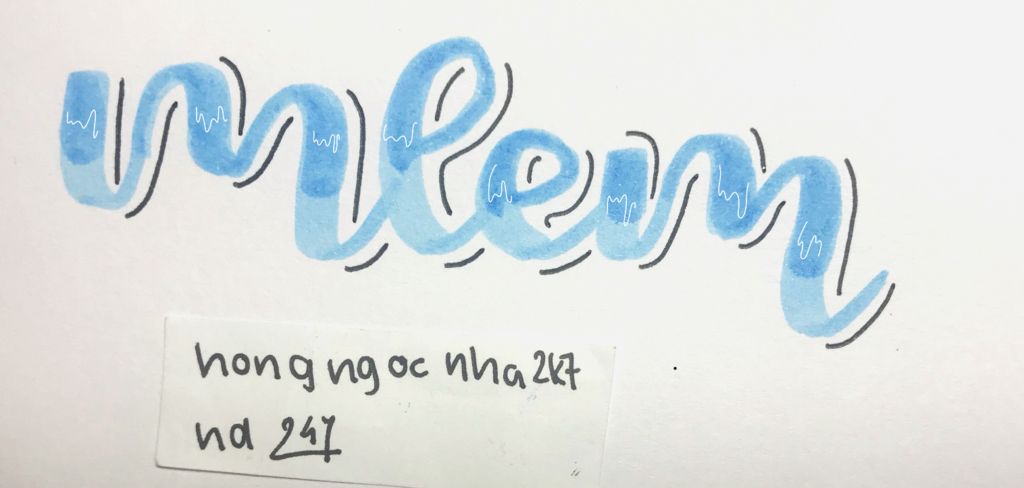 mlem
hong ngoc nha 2k7
nd 247